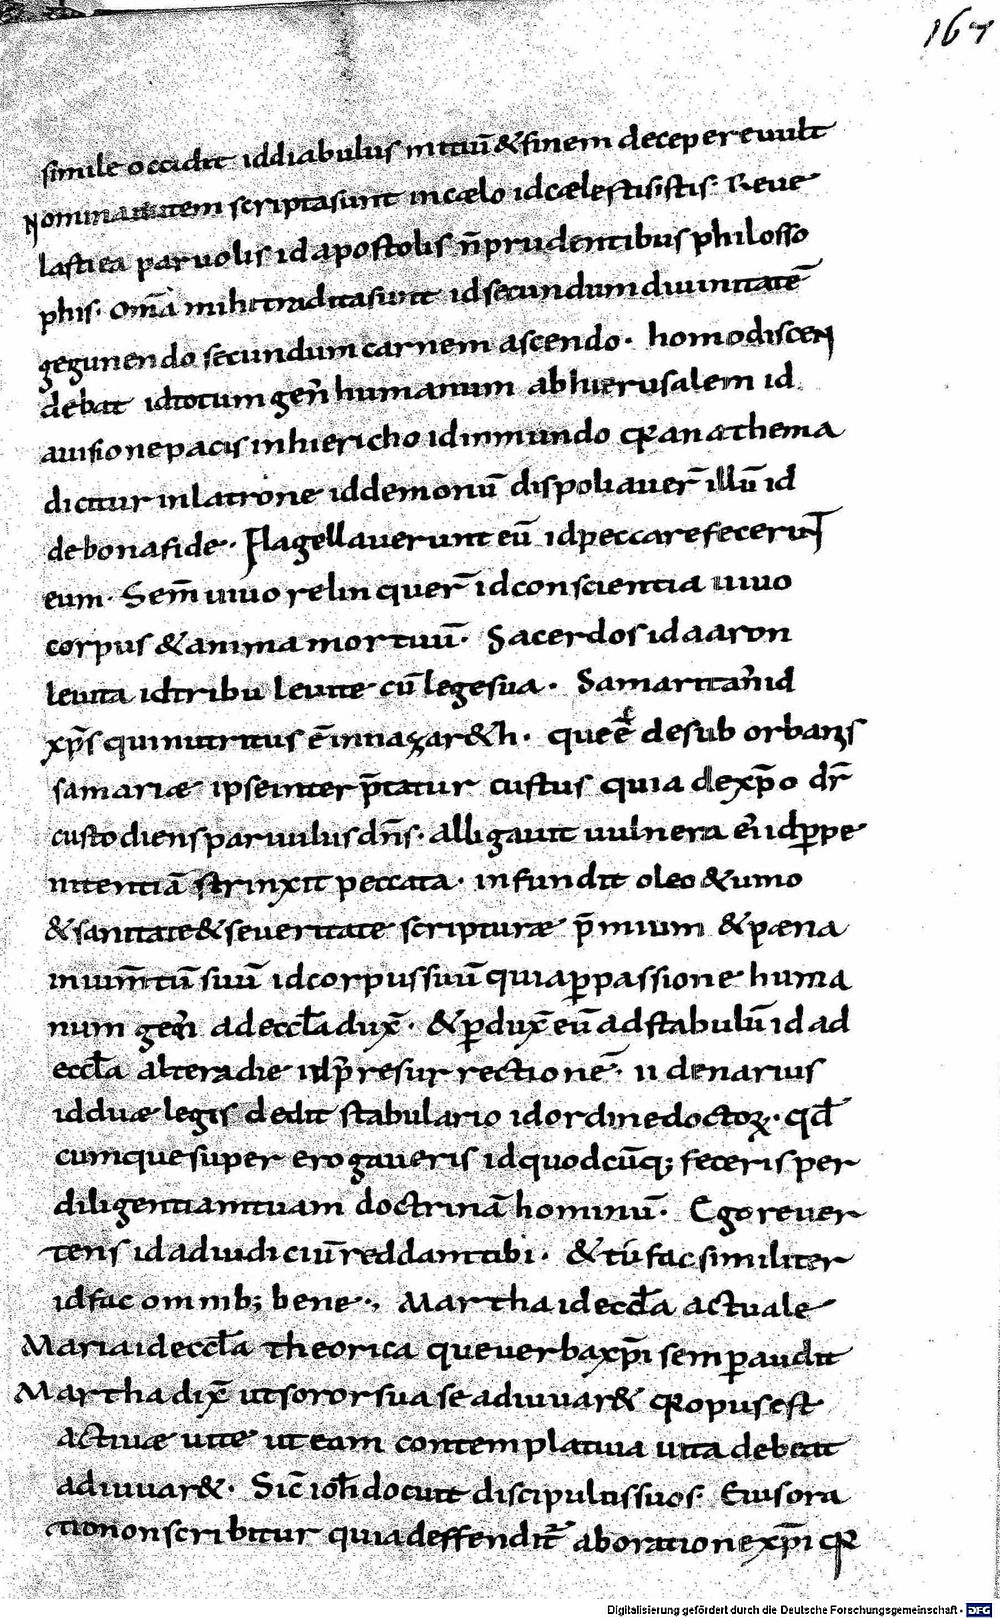 167
simile occidit id diabulus initiū & finem decepere vult
Nomina autem scripta sunt in cælo id cælestis istis· Reve
lasti ea parvolis id apostolis n̄ prudentibus philosso
phis· Om̄a mihi tradita sunt id secundum divinitatē
gegunendo secundum carnem ascendo· homo discen
debat id totum gen̄ humanum ab hierusalem id
a visione pacis in hiericho id in mundo qR anathema
dicitur in latrone id demonū dispoliaver̄ illū id
de bona fide· Flagellaverunt eū id peccare fecerūT
eum· Sem̄ vivo relinquer̄ id conscientia vivo
corpus & anima mortuū· Sacerdos id aaron
levita id tribu levite cū lege sua· Samaritan̄ id
xp̄s qui nutritus ē in nazar&h· que ē de sub orbanis
samariæ ipse inter p̄tatur custus quia de xp̄o dr̄
custodiens parvulus dn̄s· alligavit vulnera ei᷒ id p̱ pe
nitentiā strinxit peccata· infundit oleo & vino
& sanitate & severitate scripturæ p̄mium & pæna
in ium̄tū suū id corpus suū quia p̱ passione huma
num gen̄ ad eccl̄a dux̄· & p̱dux̄ eū ad stabulū id ad
eccl̄a altera die id p̄ resurrectionē· ii denarius
id duæ legis dedit stabulario id ordine doctoꝝ· qd̄
cumque super erogaveris id quodcūq; feceris per
diligentiam tuam doctrinā hominū· Ego rever
tens id ad iudiciū reddam tibi· & tū fac similiter
id fac omnib; bene·, Martha id eccl̄a actuale
Maria id eccl̄a theorica que verba xp̄i semp̱ audit
Martha dix̄ ut soror sua se adiuvar& qR opus est
activæ vite ut eam contemplativa vita debeat
adiuvar&· Sic̄ ioh̄ docuit discipulus suos· Eius ora
tio non scribitur quia deffendit̄ ab oratione xp̄i qR
Digitalisierung gefördert durch die Deutsche Forschungsgemeinschaft - DFG